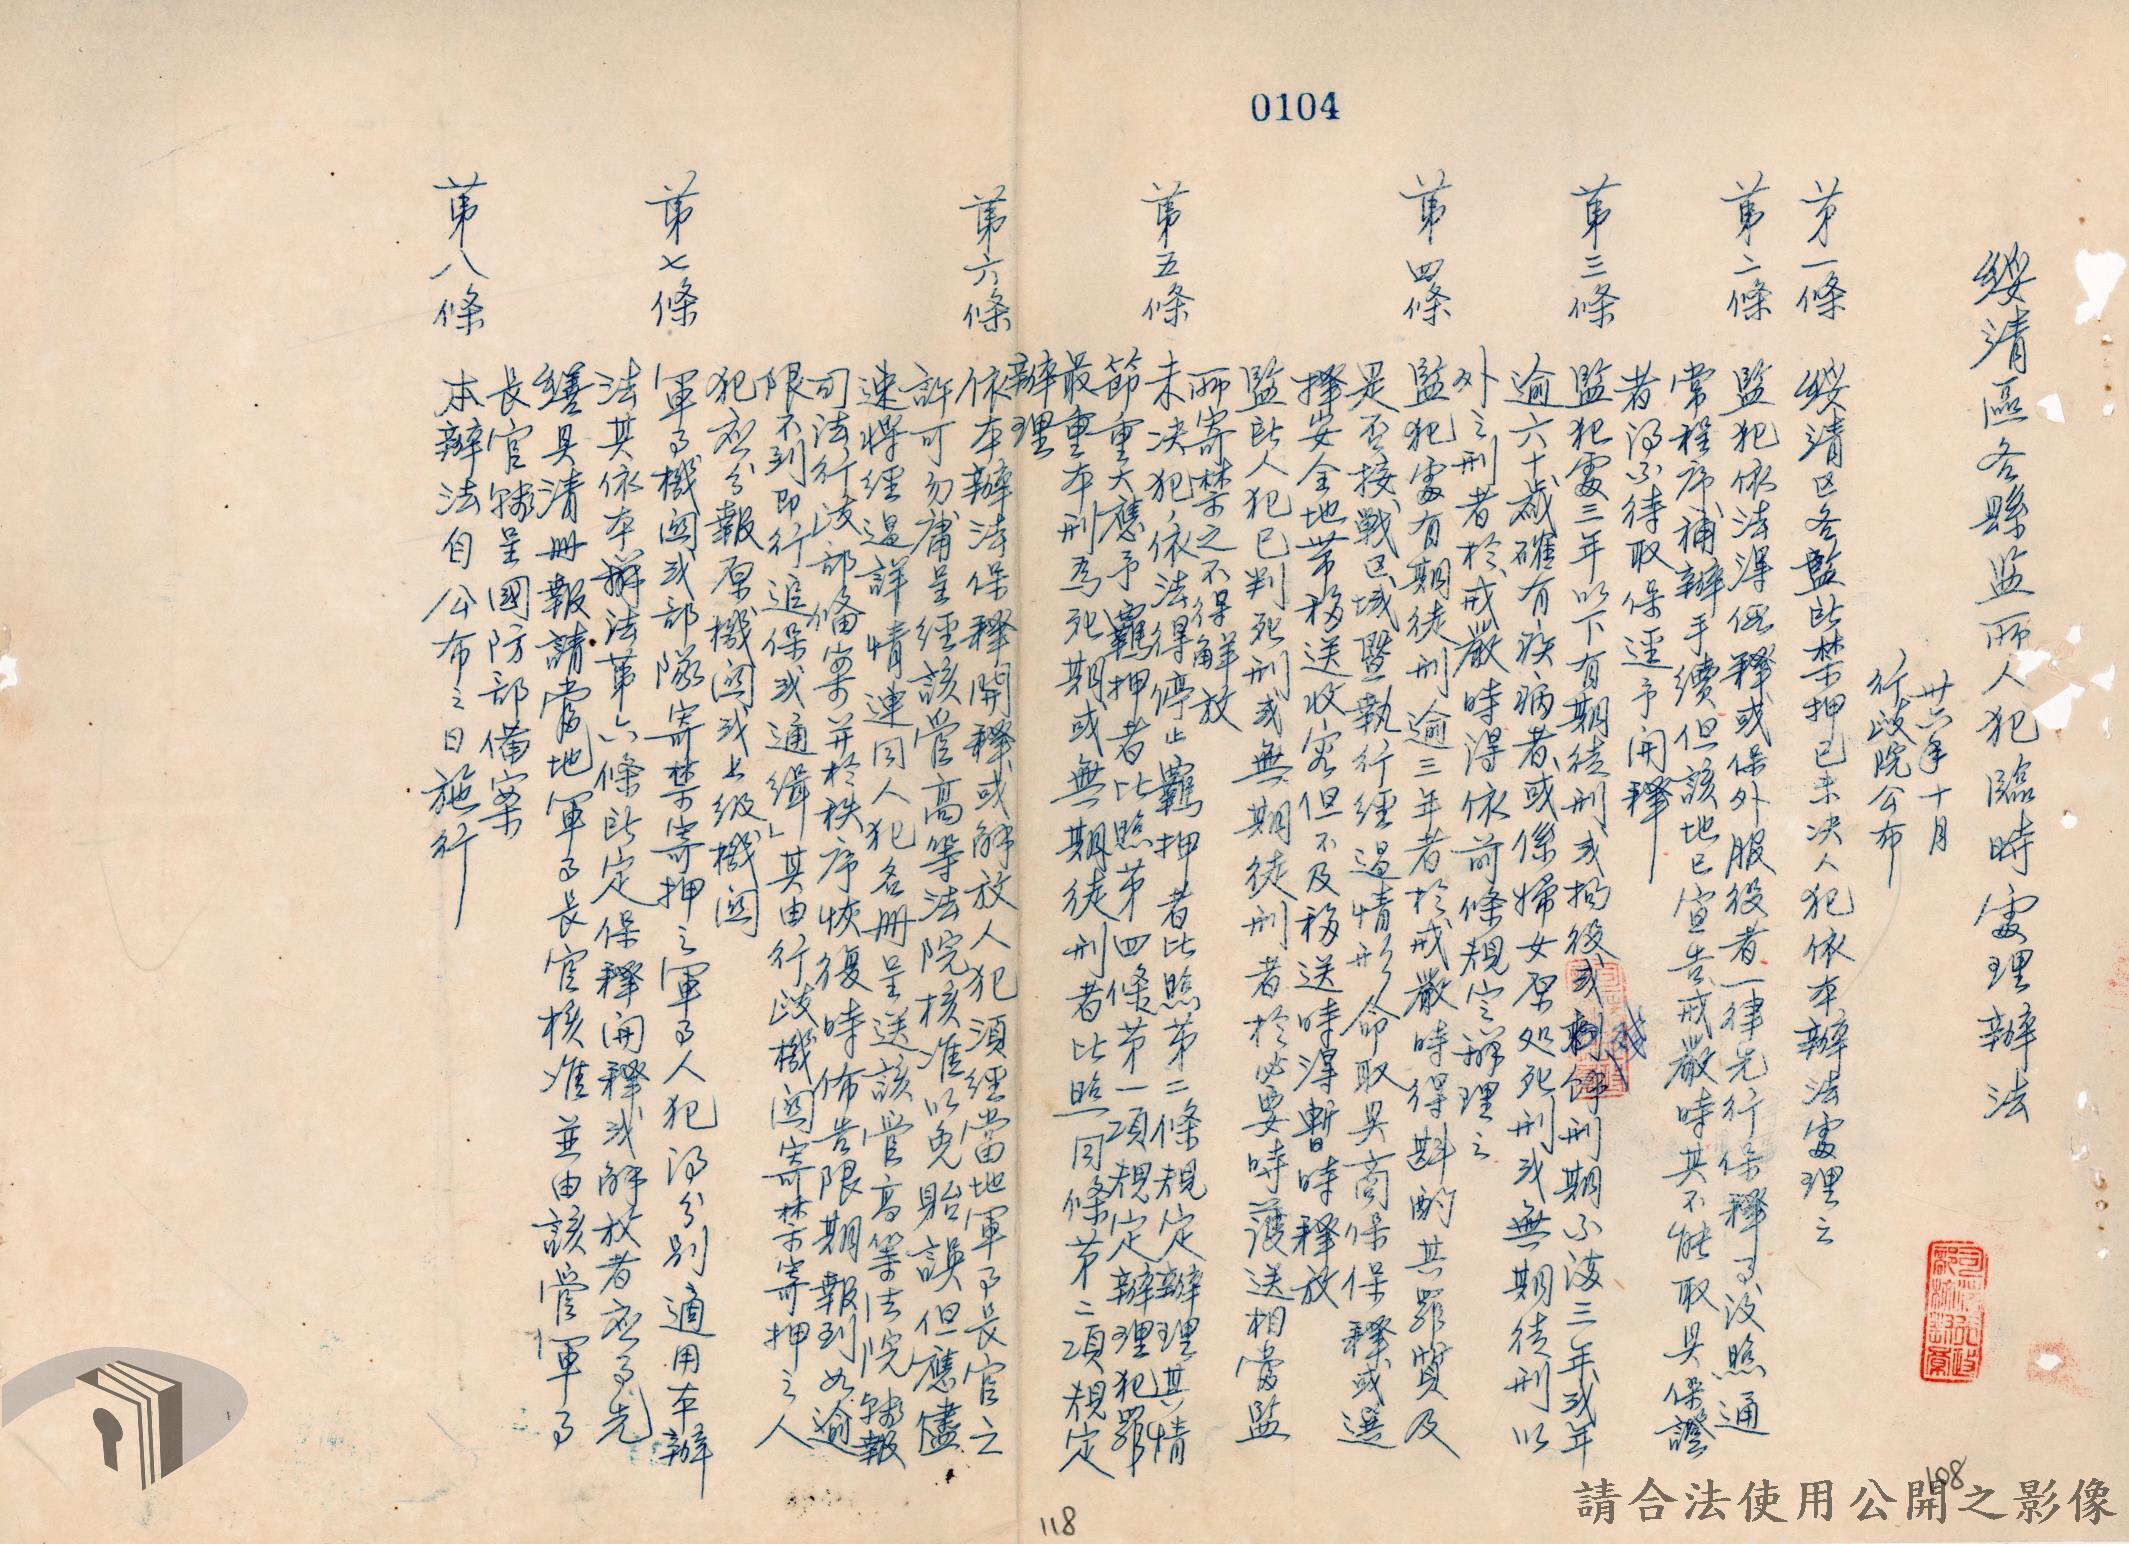 0104
綏清區各縣監所人犯臨時處理辦法
卅六年十月
行政院公布
第一條
綏清区各監所禁押已未决人犯依本辦法處理之
第二條
監犯依法得假釋或保外服役者一律先行保釋事後照通
常程序補辦手續但該地已宣告戒嚴時其不能取具保證
者得不待取保逕予開釋
第三條
監犯處三年以下有期徒刑或拘役或殘餘刑期不滿三年或年
逾六十歲確有疾病者或係婦女原处死刑或無期徒刑以
外之刑者於戒嚴時得依前條規定辦理之
第四條
監犯處有期徒刑逾三年者於戒嚴時得斟酌其罪質及
是否接战区域暨執行經過情形命取具商保保釋或選
擇安全地带移送收容但不及移送時得暫時釋放
監所人犯已判死刑或無期徒刑者於必要時護送相當監
所寄禁之不得解放
第五條
未决犯依法得停止羈押者比照第二條規定辦理其情
節重大應予羈押者比照第四條第一項規定辦理犯罪
最重本刑為死期或無期徒刑者比照同條第二項規定
辦理
第六條
依本辦法保釋開釋或解放人犯須經當地軍事長官之
許可勿庸呈經該管高等法院核准以免貽誤但應儘
速將經過詳情連同人犯名册呈送該管高等法院轉報
司法行政部備案并於秩序恢復時佈告限期報到如逾
限不到即行追保或通緝其由行政機関寄禁寄押之人
犯应分報原機関或上级機関
第七條
軍事機関或部隊寄禁寄押之軍事人犯得分别適用本辦
法其依本辦法第六條所定保釋開釋或解放者应事先
繕具清册報請當地軍事長官核准並由該管軍事
長官轉呈國防部備案
第八條
本辦法自公布之日施行
118
108
請合法使用公開之影像